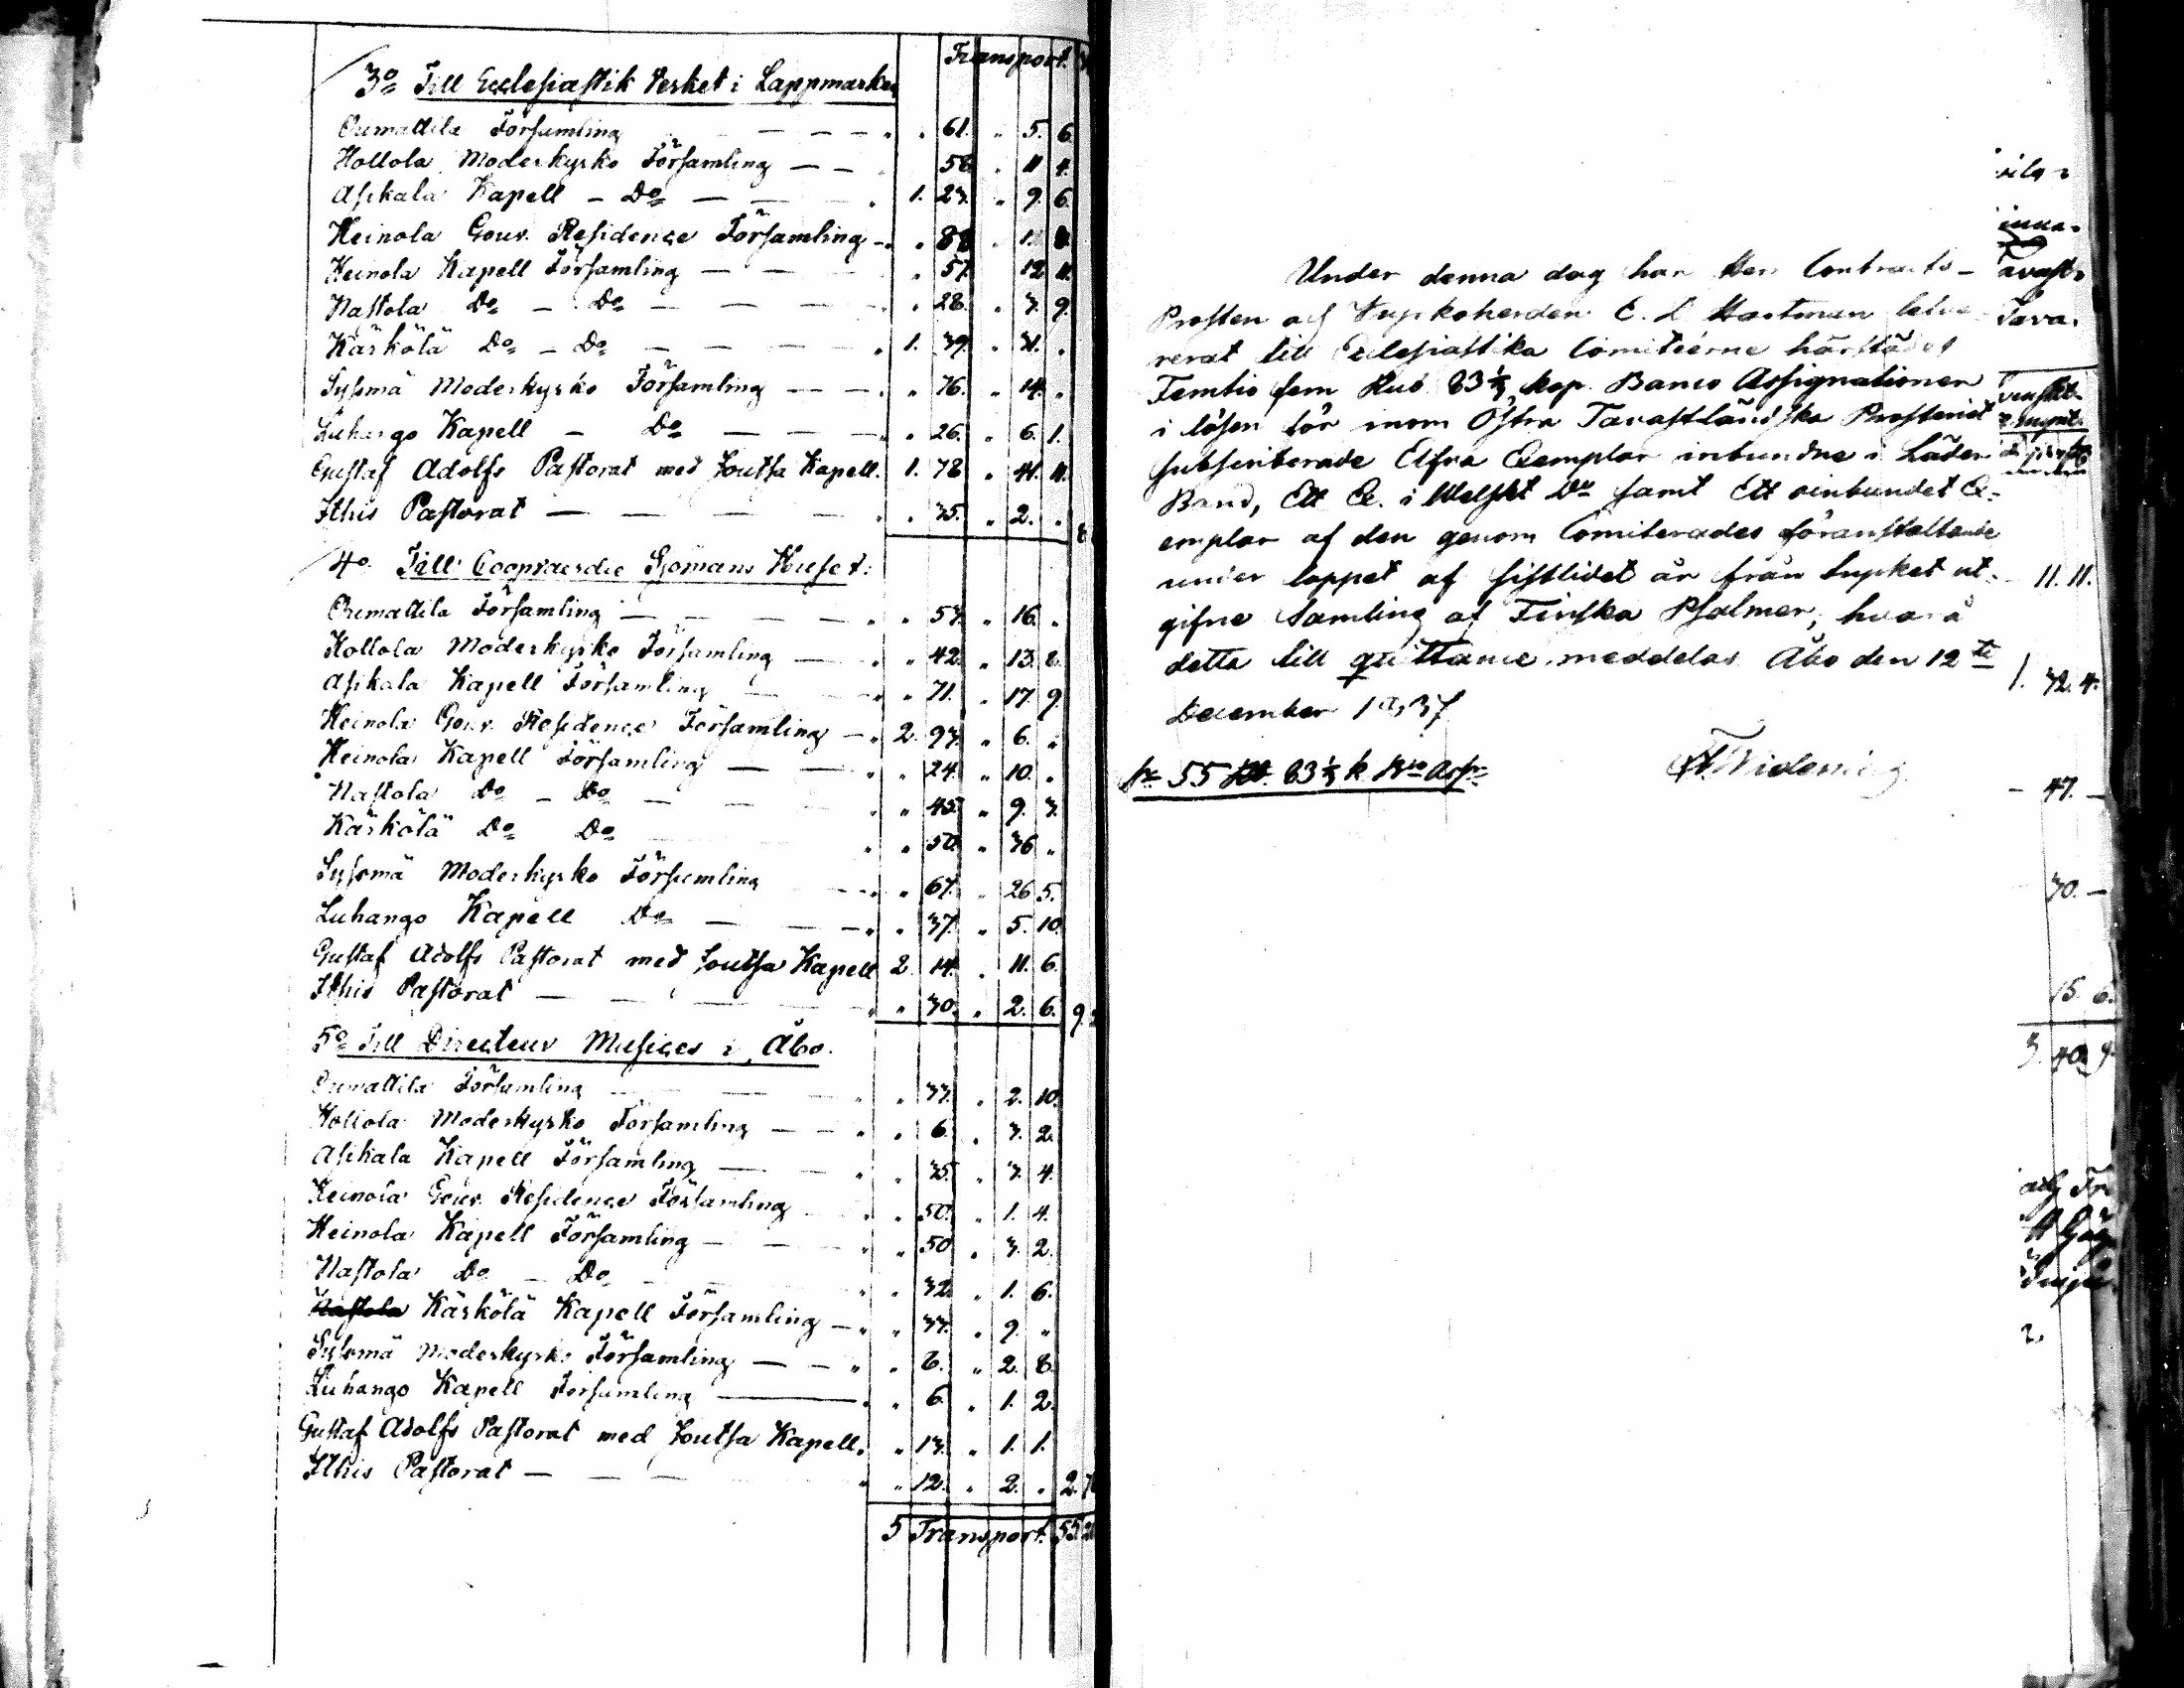 Transport.
3o Till Ecclesiastik Verket i Lappmarken
Orimattila Församling — — — „ „ 61. „ 5. 6.
Hollola Moderkyrko Församling — — „ 58. „ 11 4.
Asikala Kapell — Do — — „ 1. 23. „ 9. 6.
Heinola Gouv. Residence Församling — „ „ 88 „ 1.
Heinola Kapell Församling — — „ 57. 12 11.
Nastola Do — Do — — — „ 28. „ 3. 9.
Kärkölä Do — Do — — — „ 1. 39. „ 31. „
Sysmä Moderkyrko Församling — — „ „ 76. „ 14. „
Luhango Kapell — Do — — — „ „ 26. „ 6. 1.
Gustaf Adolfs Pastorat med Joutsa Kapell. 1. 78 „ 41. 11.
Ithis Pastorat — — — — „ „ 35. „ 2. „
4o Till Coopvaerdie Sjömans Huset:
Orimattila Församling — — — — „ „ 53. „ 16. „
Hollola Moderkyrko Församling — „ „ 42. „ 13. 8.
Asikala Kapell Församling — — „ „ 71. „ 17. 9.
Heinola Gouv. Residence Församling — „ 2. 93. „ 6. „
Heinola Kapell Församling — — „ „ 24. „ 10. „
Nastola Do — Do — — „ „ 45. „ 9. 3.
Kärkölä Do Do „ „ 50. „ 36 „
Sysmä Moderkyrko Församling — „ „ 67. „ 26 5.
Luhango Kapell Do — — „ „ 37. „ 5. 10.
Gustaf Adolfs Pastorat med Joutsa Kapell 2. 14. „ 11. 6.
Ithis Pastorat — — — „ „ 30. „ 2. 6. 9.
5o Till Directeur Musices i Åbo.
Orimattila Församling — — „ „ 33. „ 2. 10.
Hollola Moderkyrko Församling — — „ „ 6. „ 3. 2.
Asikala Kapell Församling — — „ „ 35. „ 3. 4.
Heinola Gouv. Residence Församling „ „ 50. „ 1. 4.
Heinola Kapell Församling — — „ „ 50 „ 3. 2.
Nastola Do — Do — „ „ 32. „ 1. 6.
Nastola Kärkölä Kapell Församling — „ „ 33. „ 9. „
Sysmä Moderkyrko Församling — — „ „ 6. „ 2. 8.
Luhango Kapell Församling — „ „ 6. „ 1. 2.
Gustaf Adolfs Pastorat med Joutsa Kapell. „ 13. „ 1. 1.
Ithis Pastorat — — — „ „ 12. „ 2. „ 2.
5 Transport. 55
Under denna dag har Herr Contracts-
Prosten och Kyrkoherden E. Hartman
rerat till Ecclesiastika Comitéerne härstädes
Femtio fem Rub. 83 1/3 kop. Banco Assignationer
i lösen för inom Östra Tavastländska Prosteriet
subscriberade Elfva Exemplar inbundne i Läder
Band, Ett Ex. i Welskt Do samt Ett oinbundet Ex-
emplar af den genom Comiterades föranstaltande
under loppet af sistlidet år från trycket ut-
gifne Samling af Finska Psalmer, hvarå
detta till quittance meddelas. Åbo den 12te
December 1837
55 R. 83 1/3 k Bco Assr
Widening
11. 11.
1. 32. 4.
— 47. —
30. —
15. 6.
3. 40. 9.